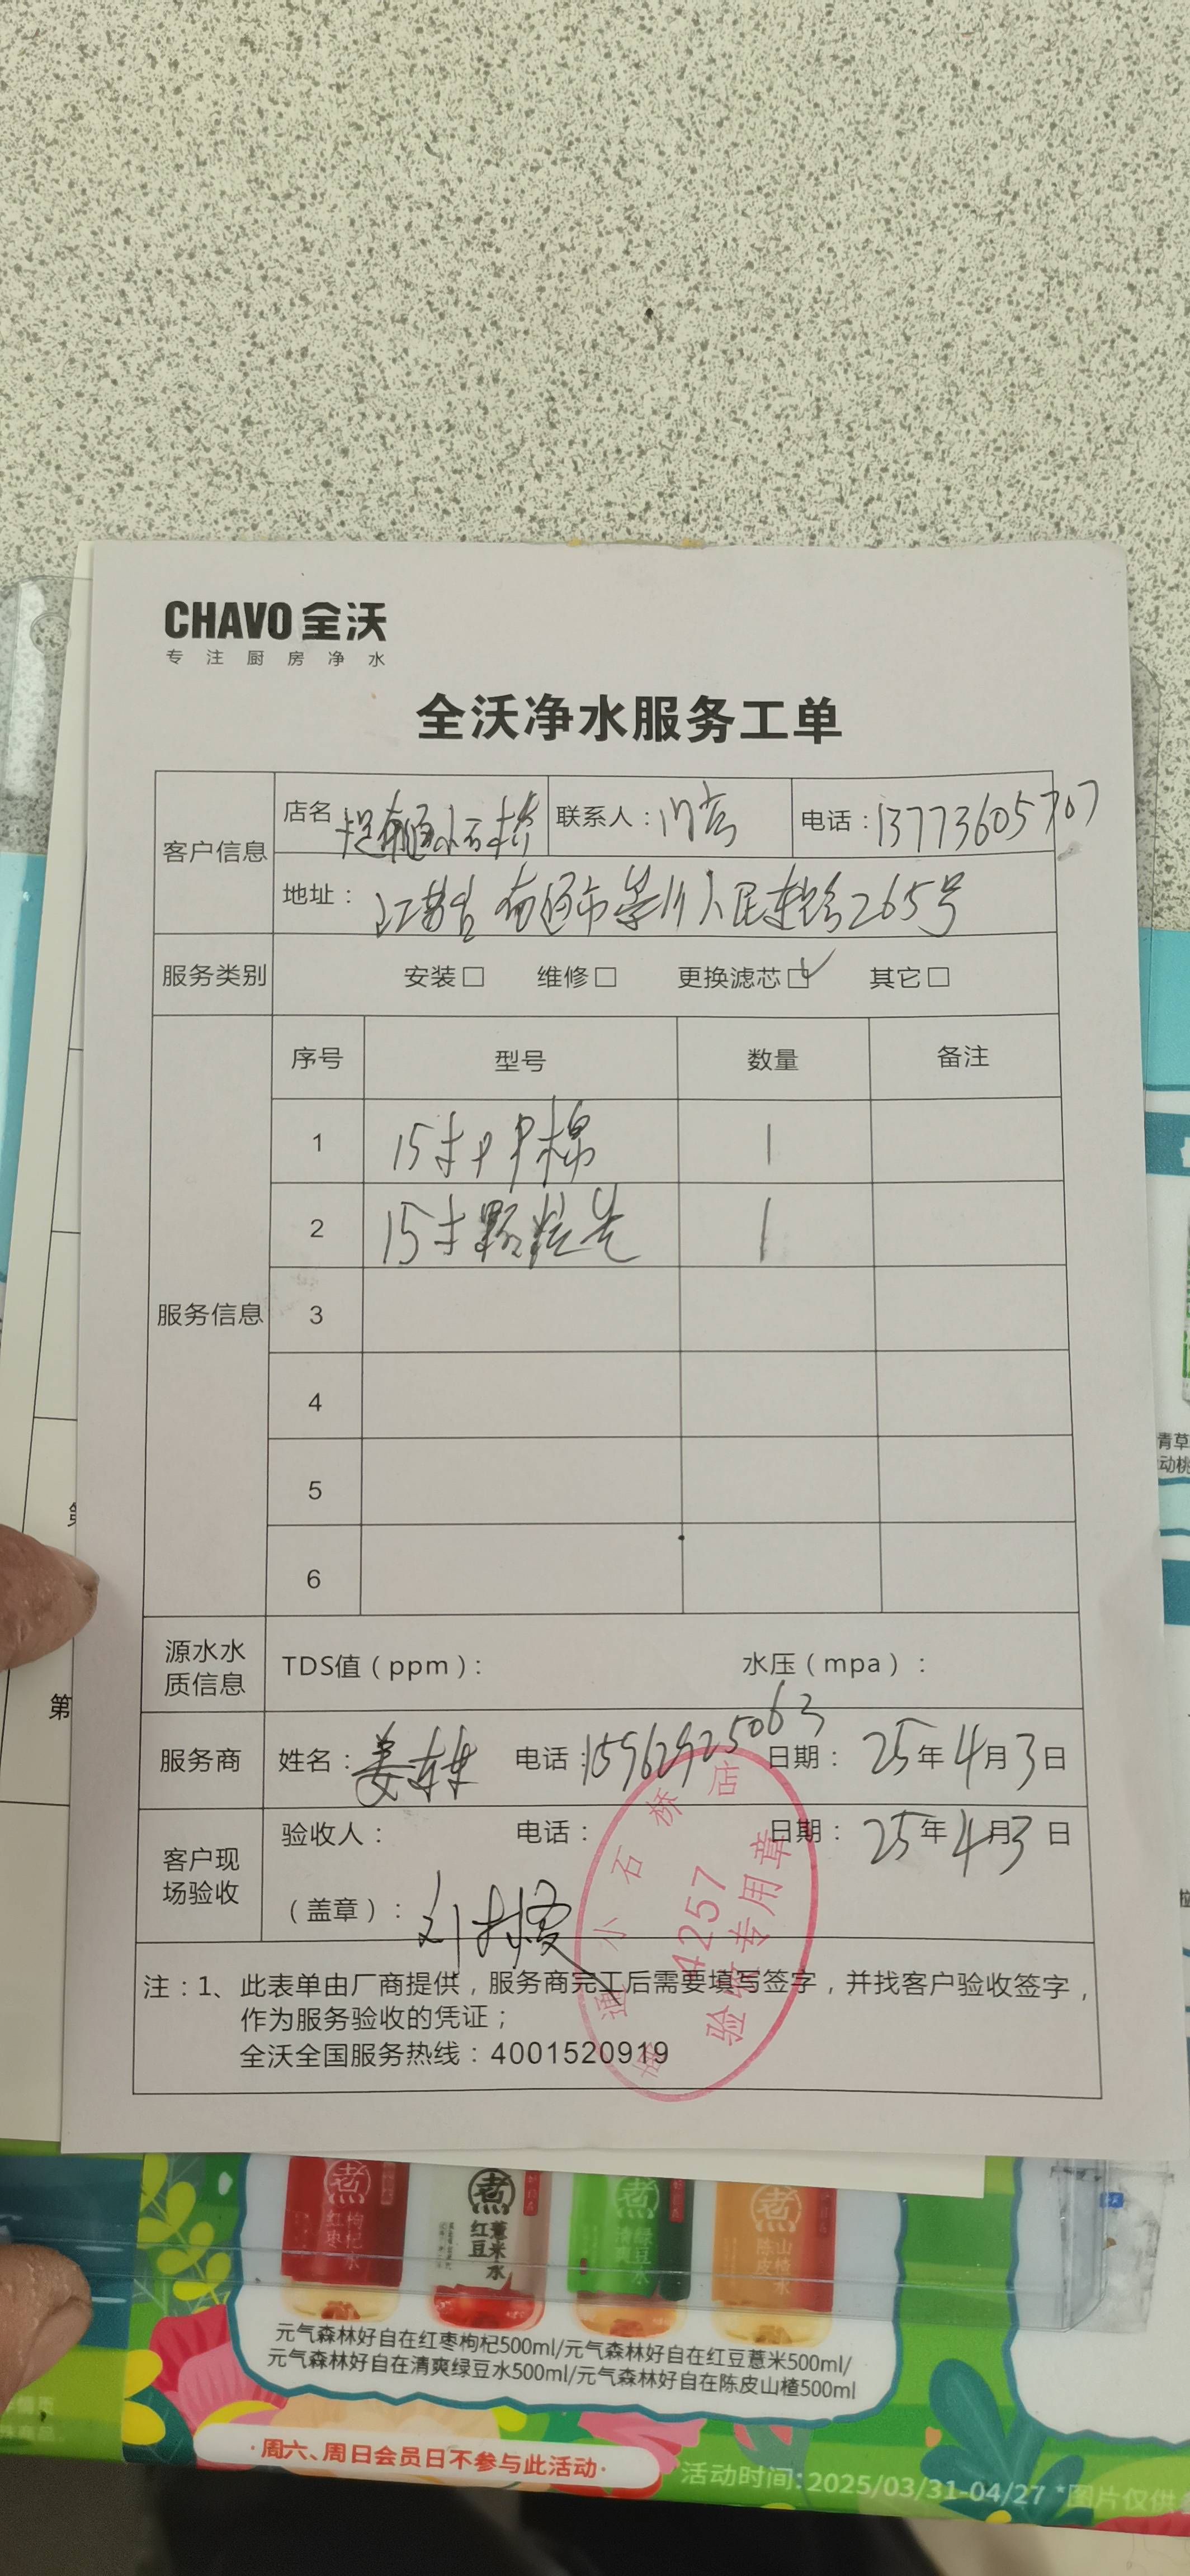 CHAVO 全沃
专注厨房净水
全沃净水服务工单
客户信息
店名 南通小石桥
联系人：
电话：13773605707
地址：江苏省南通市崇川人民东路265号
服务类别
安装□ 维修□ 更换滤芯☑ 其它□
服务信息
序号 型号 数量 备注
1 15寸PP棉 1
2 15寸颗粒炭 1
3
4
5
6
源水水质信息
TDS值（ppm）： 水压（mpa）：
服务商
姓名：姜东 电话：15962925063 日期：25年4月3日
客户现场验收
验收人： 电话： 日期：25年4月3日
（盖章）：刘
南通小石桥店
4257
验收专用章
注：1、此表单由厂商提供，服务商完工后需要填写签字，并找客户验收签字，
作为服务验收的凭证；
全沃全国服务热线：4001520919
第
青草
动桃
煮 红枣枸杞水
煮 红豆薏米水
煮 绿豆水
煮 陈皮山楂水
元气森林好自在红枣枸杞500ml/元气森林好自在红豆薏米500ml/
元气森林好自在清爽绿豆水500ml/元气森林好自在陈皮山楂500ml
·周六、周日会员日不参与此活动·
活动时间：2025/03/31-04/27 *图片仅供